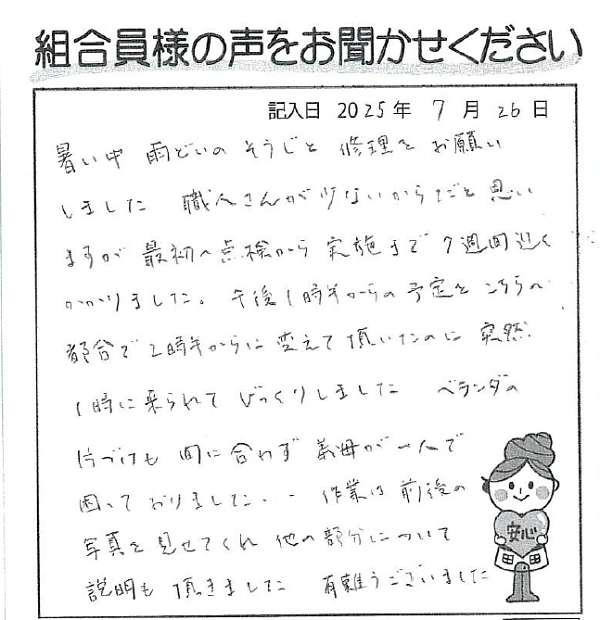 組合員様の声をお聞かせください
記入日 2025年 7月 26日
暑い中 雨どいの そうじと 修理を お願い
しました 職人さんが少ないからだと思い
ますが 最初の点検から 実施まで 7週間近く
かかりました。午後1時半からの予定を こちらの
都合で2時半からに 変えて頂いたのに 突然
1時に来られて びっくりしました ベランダの
片づけも 間に合わず 義母が一人で
困って おりました・・ 作業は 前後の
写真を見せてくれ 他の部分について
説明も 頂きました 有難うございました
安心